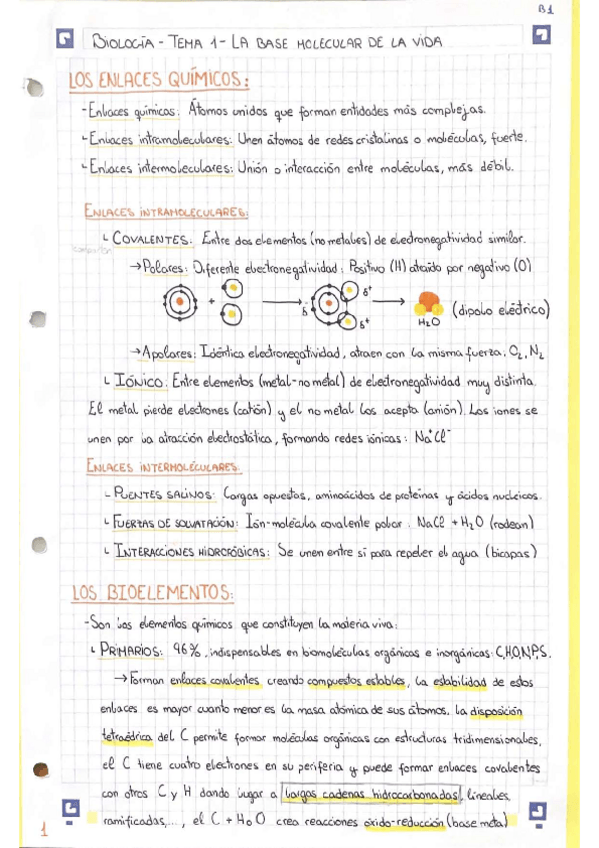 B1
BIOLOGÍA - TEMA 1 - LA BASE MOLECULAR DE LA VIDA
LOS ENLACES QUÍMICOS:
- Enlaces químicos: Átomos unidos que forman entidades más complejas.
Enlaces intramoleculares: Unen átomos de redes cristalinas o moléculas, fuerte.
Enlaces intermoleculares: Unión o interacción entre moléculas, más débil.
ENLACES INTRAMOLECULARES:
COVALENTES: Entre dos elementos (no metales) de electronegatividad similar.
→ Polares: Diferente electronegatividad: Positivo (H) atraído por negativo (O)
+ → δ⁻ δ⁺ δ⁺ → H₂O (dipolo eléctrico)
→ Apolares: Idéntica electronegatividad, atraen con la misma fuerza. O₂, N₂
IÓNICO: Entre elementos (metal-no metal) de electronegatividad muy distinta.
El metal pierde electrones (catión) y el no metal los acepta (anión). Los iones se
unen por la atracción electrostática, formando redes iónicas: Na⁺Cl⁻
ENLACES INTERMOLÉCULARES:
PUENTES SALINOS: Cargas opuestas, aminoácidos de proteínas y ácidos nucleicos.
FUERZAS DE SOLVATACIÓN: Ión-molécula covalente polar: NaCl + H₂O (rodean)
INTERACCIONES HIDROFÓBICAS: Se unen entre sí para repeler el agua (bicapas)
LOS BIOELEMENTOS:
- Son los elementos químicos que constituyen la materia viva:
PRIMARIOS: 96%, indispensables en biomoléculas orgánicas e inorgánicas: C,H,O,N,P,S.
→ Forman enlaces covalentes creando compuestos estables, la estabilidad de estos
enlaces es mayor cuanto menor es la masa atómica de sus átomos. La disposición
tetraédrica del C permite formar moléculas orgánicas con estructuras tridimensionales,
el C tiene cuatro electrones en su periferia y puede formar enlaces covalentes
con otros C y H dando lugar a largas cadenas hidrocarbonadas, lineales,
ramificadas,..., el C + H o O crea reacciones óxido-reducción (base meta)
1